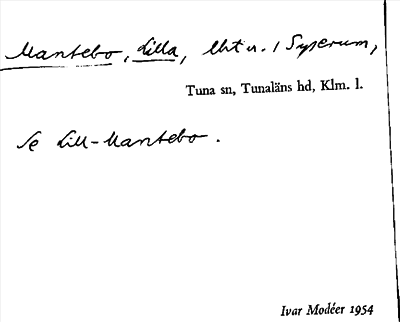 Mantebo, Lilla, lht u. / Syserum,
Tuna sn, Tunaläns hd, Klm. l.
Se Lill-Mantebo.
Ivar Modéer 1954